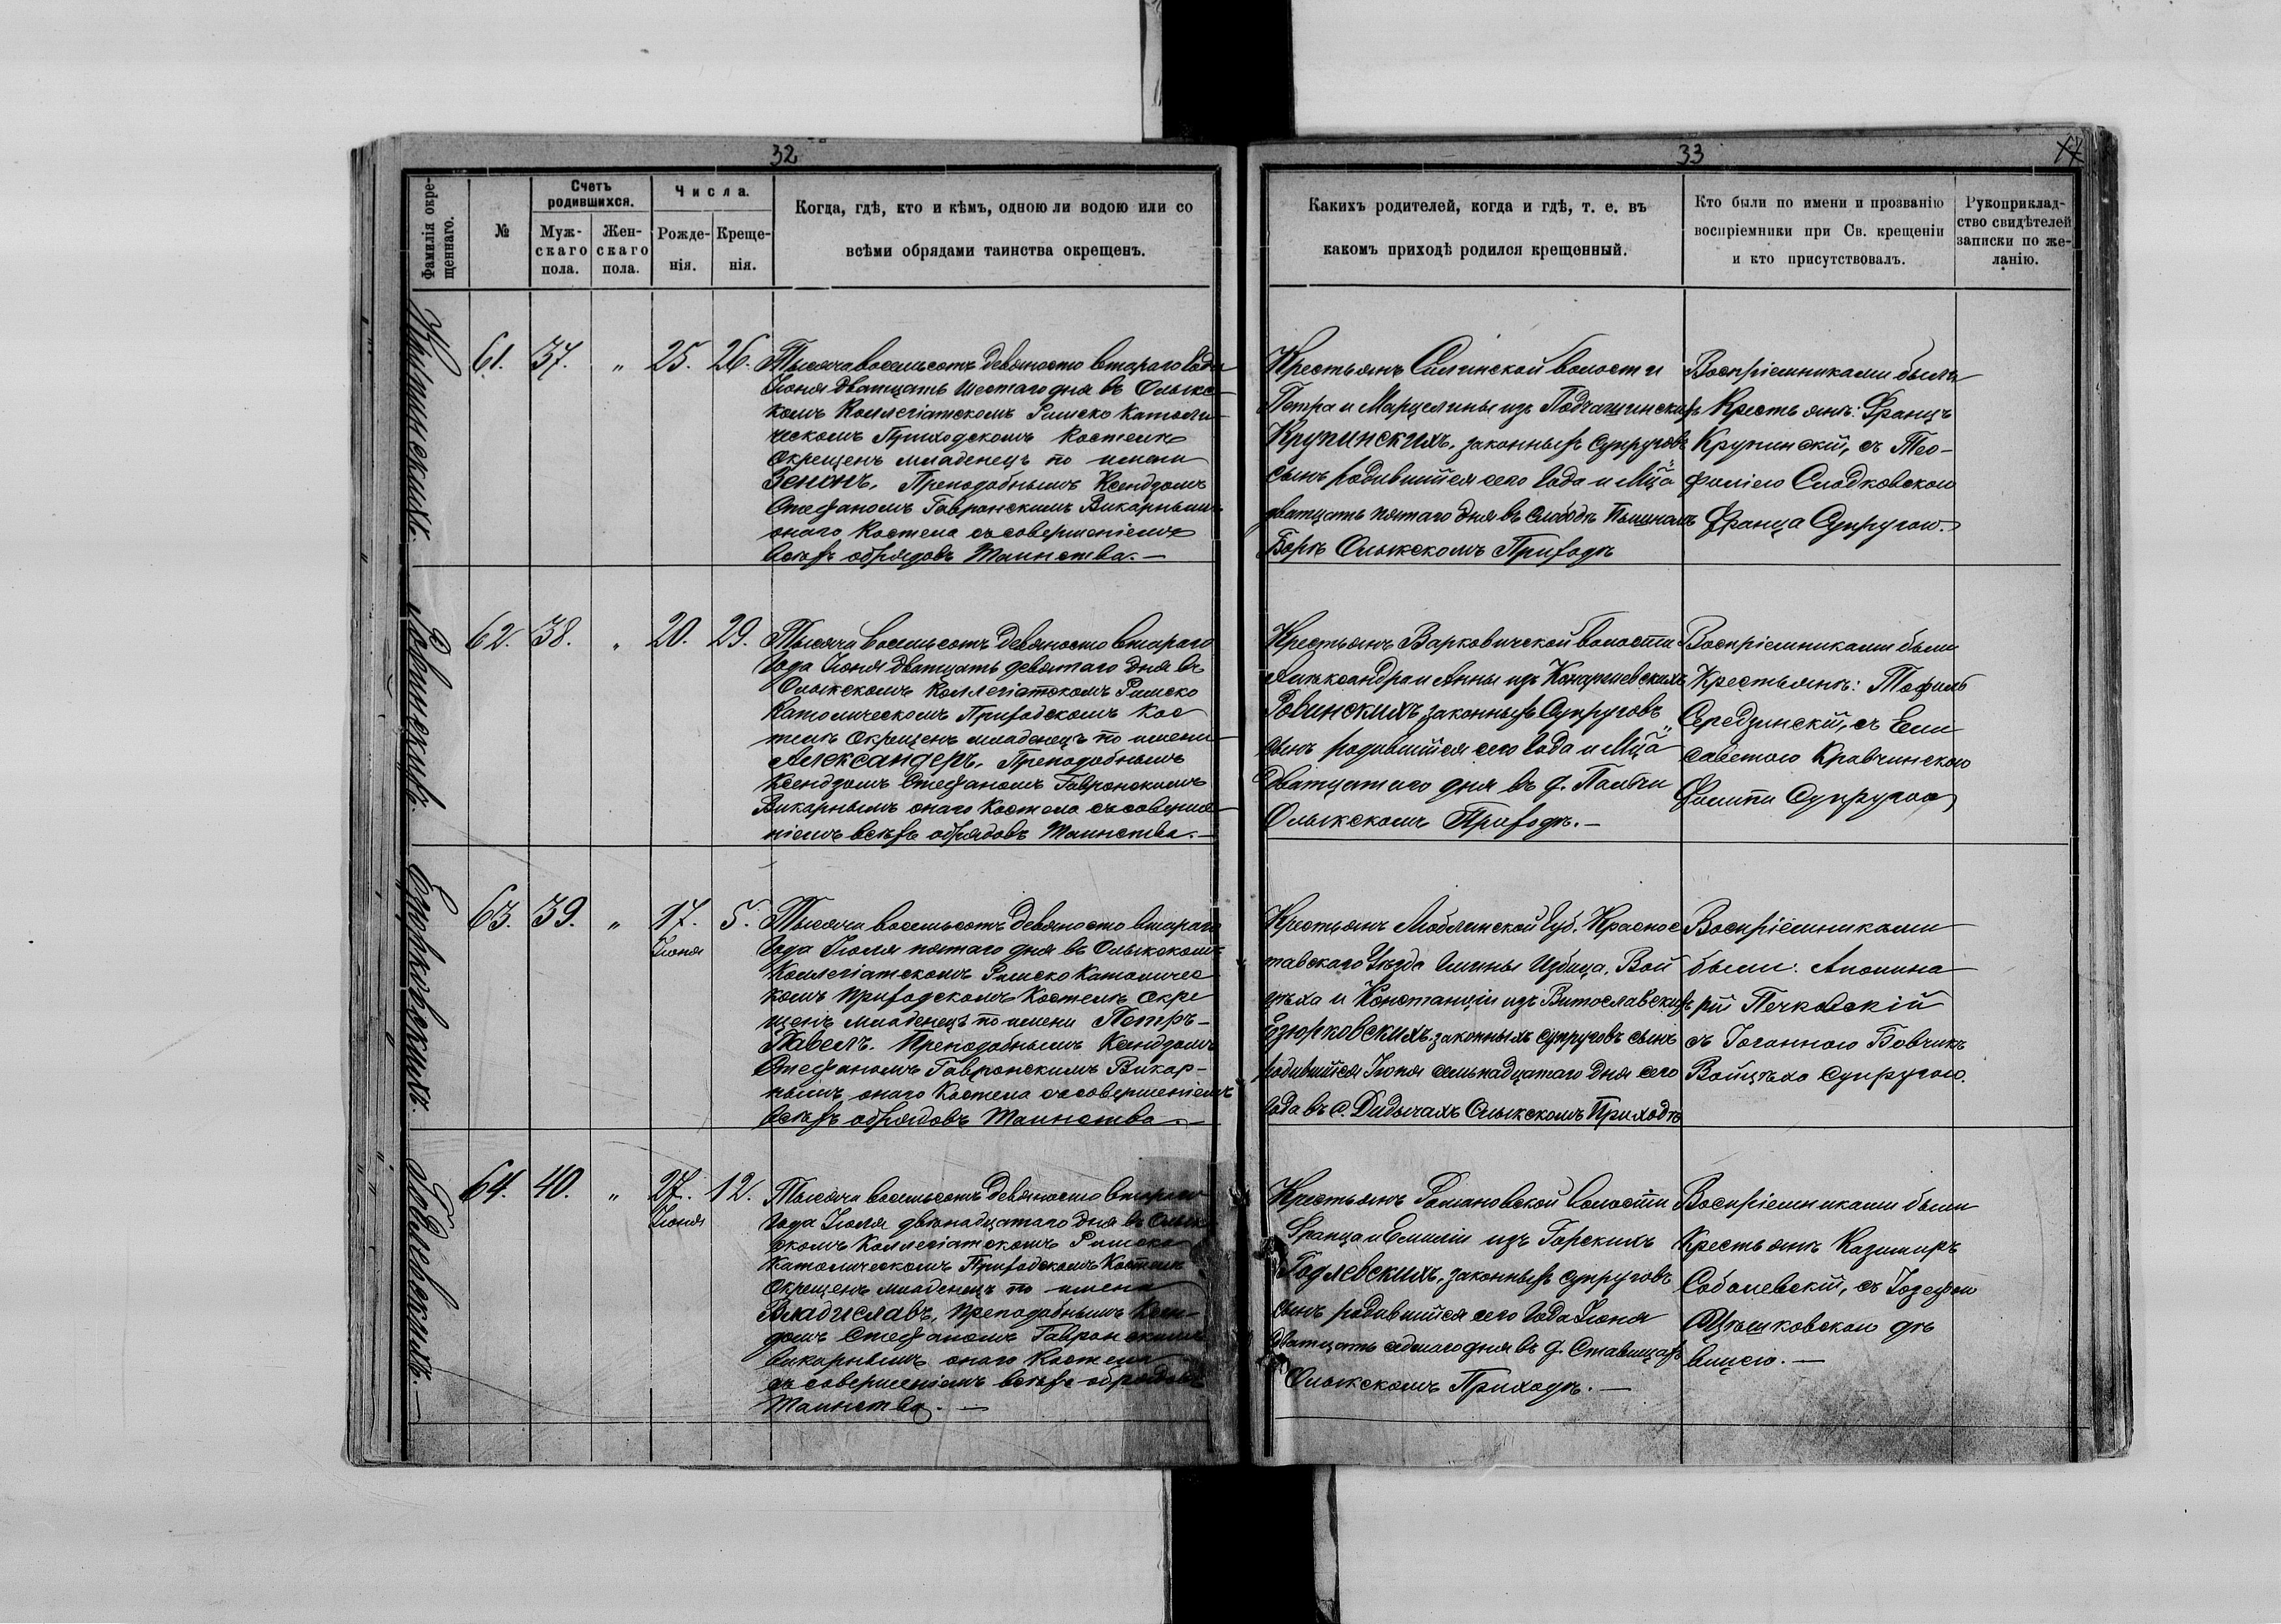 32
Фамилія окре-
щеннаго.
№
Счетъ
родившихся.
Муж-
скаго
пола.
Жен-
скаго
пола.
Числа.
Рожде-
нія.
Креще-
нія.
Когда, гдѣ, кто и кѣмъ, одною ли водою или со
всѣми обрядами таинства окрещенъ.
Крупинскихъ.
61. 37. „ 25. 26.
Тысяча восемьсотъ девяносто втораго года
Іюня двадцать шестаго дня въ Олыкс-
комъ Коллегіатскомъ Римско Католи-
ческомъ Приходскомъ Костелѣ
окрещенъ младенецъ по имени
Зенонъ, Преподобнымъ Ксендзомъ
Стефаномъ Гавронскимъ Викарнымъ
онаго Костела съ совершеніемъ
всѣхъ обрядовъ Таинства.—
Ровинскихъ.
62. 38. „ 20. 29.
Тысяча восемьсотъ девяносто втораго
года Іюня двадцать девятаго дня въ
Олыкскомъ Коллегіатскомъ Римско
Католическомъ Приходскомъ Кос
телѣ окрещенъ младенецъ по имени
Александеръ, Преподобнымъ
Ксендзомъ Стефаномъ Гавронскимъ
Викарнымъ онаго Костела съ соверше-
ніемъ всѣхъ обрядовъ Таинства.—
Езюрковскихъ.
63. 39. „ 17. 5.
Іюня
Тысяча восемьсотъ девяносто втораго
года Іюля пятаго дня въ Олыкскомъ
Коллегіатскомъ Римско Католичес
комъ Приходскомъ Костелѣ окре
щенъ младенецъ по имени Петръ-
Павелъ. Преподобнымъ Ксендзомъ
Стефаномъ Гавронскимъ Викар-
нымъ онаго Костела съ совершеніемъ
всѣхъ обрядовъ Таинства.—
Годлевскихъ.—
64. 40. „ 27. 12.
Іюня
Тысяча восемьсотъ девяносто втораго
года Іюля двѣнадцатаго дня въ Олык
скомъ Коллегіатскомъ Римско
Католическомъ Приходскомъ Костелѣ
окрещенъ младенецъ по имени
Владиславъ, Преподобнымъ Ксен-
дзомъ Стефаномъ Гавронскимъ
Викарнымъ онаго Костела
съ совершеніемъ всѣхъ обрядовъ
Таинства.—
33
17
Какихъ родителей, когда и гдѣ, т. е. въ
какомъ приходѣ родился крещенный.
Кто были по имени и прозванію
воспріемники при Св. крещеніи
и кто присутствовалъ.
Рукоприклад-
ство свидѣтелей
записки по же-
ланію.
Крестьянъ Силинской волости
Петра и Марцелины изъ Подгагинскихъ
Крупинскихъ, законныхъ супруговъ
сынъ родившійся сего года и Мца
двадцать пятаго дня въ Слободѣ
Борѣ Олыкскомъ Приходѣ
Воспріемниками были
Крестьянъ: Францъ
Крупинскій, съ Тео-
филіею Сладковскою
Франца Супругою.
Крестьянъ Варковичской волости
Александра и Анны изъ
Ровинскихъ, законныхъ Супруговъ
сынъ родившійся сего года и Мца
двадцатаго дня въ д. Пальчи
Олыкскомъ Приходѣ.—
Воспріемниками были
Крестьянъ: Тофиль
Середзинскій, съ Ели
саветою Кравчинскою
Филипа Супругою
Крестьянъ Люблинской Губ. Краснос
тавскаго Уѣзда Гмины Избица, Вой
цѣха и Констанціи изъ Витославскихъ
Езюрковскихъ, законныхъ супруговъ сынъ
родившійся Іюня семьнадцатаго дня сего
года въ с. Дидычахъ Олыкскомъ Приходѣ
Воспріемниками
были: Аполина
рій Печковскій
съ Іоганною Бовчикъ
Войцѣха Супругою.
Крестьянъ Романовской волости
Франца и Емиліи изъ Горскихъ
Годлевскихъ, законныхъ супруговъ
сынъ родившійся сего года Іюня
двадцать седьмаго дня въ д. Ставищахъ
Олыкскомъ Приходѣ.—
Воспріемниками были
Крестьянъ Казимиръ
Соболевскій, съ Іозефою
дѣ
вицею.—